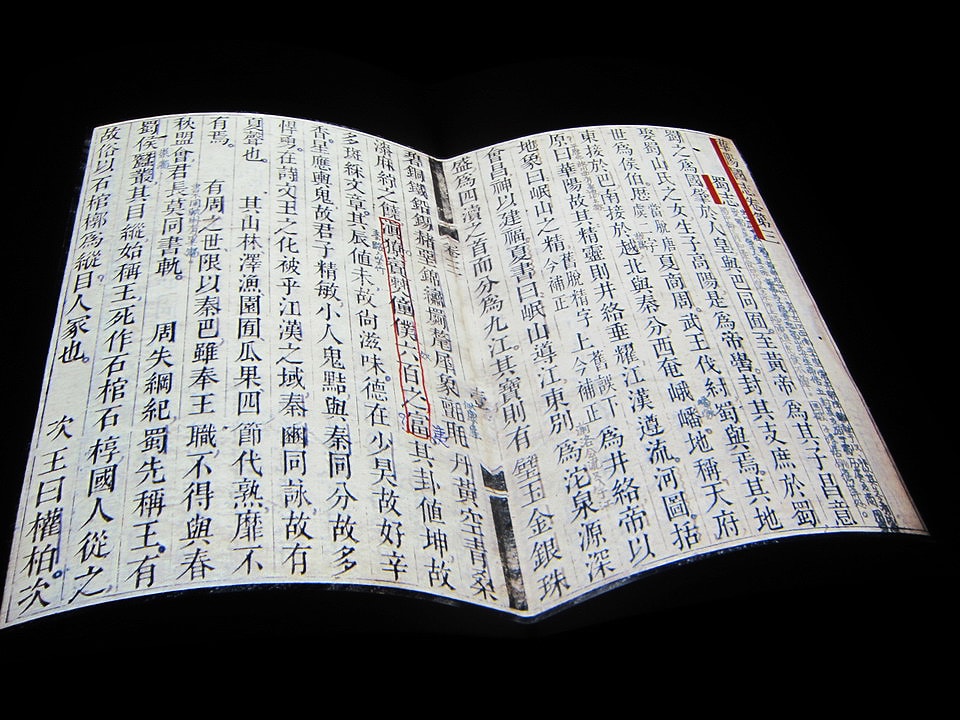 華陽國志卷第三
蜀志
蜀之為國肇於人皇與巴同囿至黃帝為其子昌意
娶蜀山氏之女生子高陽是為帝嚳封其支庶於蜀
世為侯伯歷虞當脫唐字夏商周武王伐紂蜀與焉其地
東接於巴南接於越北與秦分西奄峨嶓地稱天府
原曰華陽故其精靈則井絡垂耀江漢遵流河圖括
地象曰岷山之精舊脫精字今補正上舊誤下今補正為井絡帝以
會昌神以建福夏書曰岷山導江東別為沱泉源深
盛為四瀆之首而分為九江其寶則有璧玉金銀珠
卷三
碧銅鐵鉛錫赭堊錦繡罽氂犀象氈毦丹黃空青桑
漆麻紵之饒滇獠賨僰僮僕六百之富其卦值坤故
多斑綵文章其辰值未故尚滋味德在少昊故好辛
香星應輿鬼故君子精敏小人鬼黠與秦同分故多
悍勇在詩文王之化被乎江漢之域秦豳同詠故有
夏聲也。其山林澤漁園囿瓜果四節代熟靡不
有焉。有周之世限以秦巴雖奉王職不得與春
秋盟會君長莫同書軌。周失綱紀蜀先稱王。有
蜀侯蠶叢其目縱始稱王死作石棺石椁國人從之
故俗以石棺槨為縱目人冢也。次王曰權柏。次